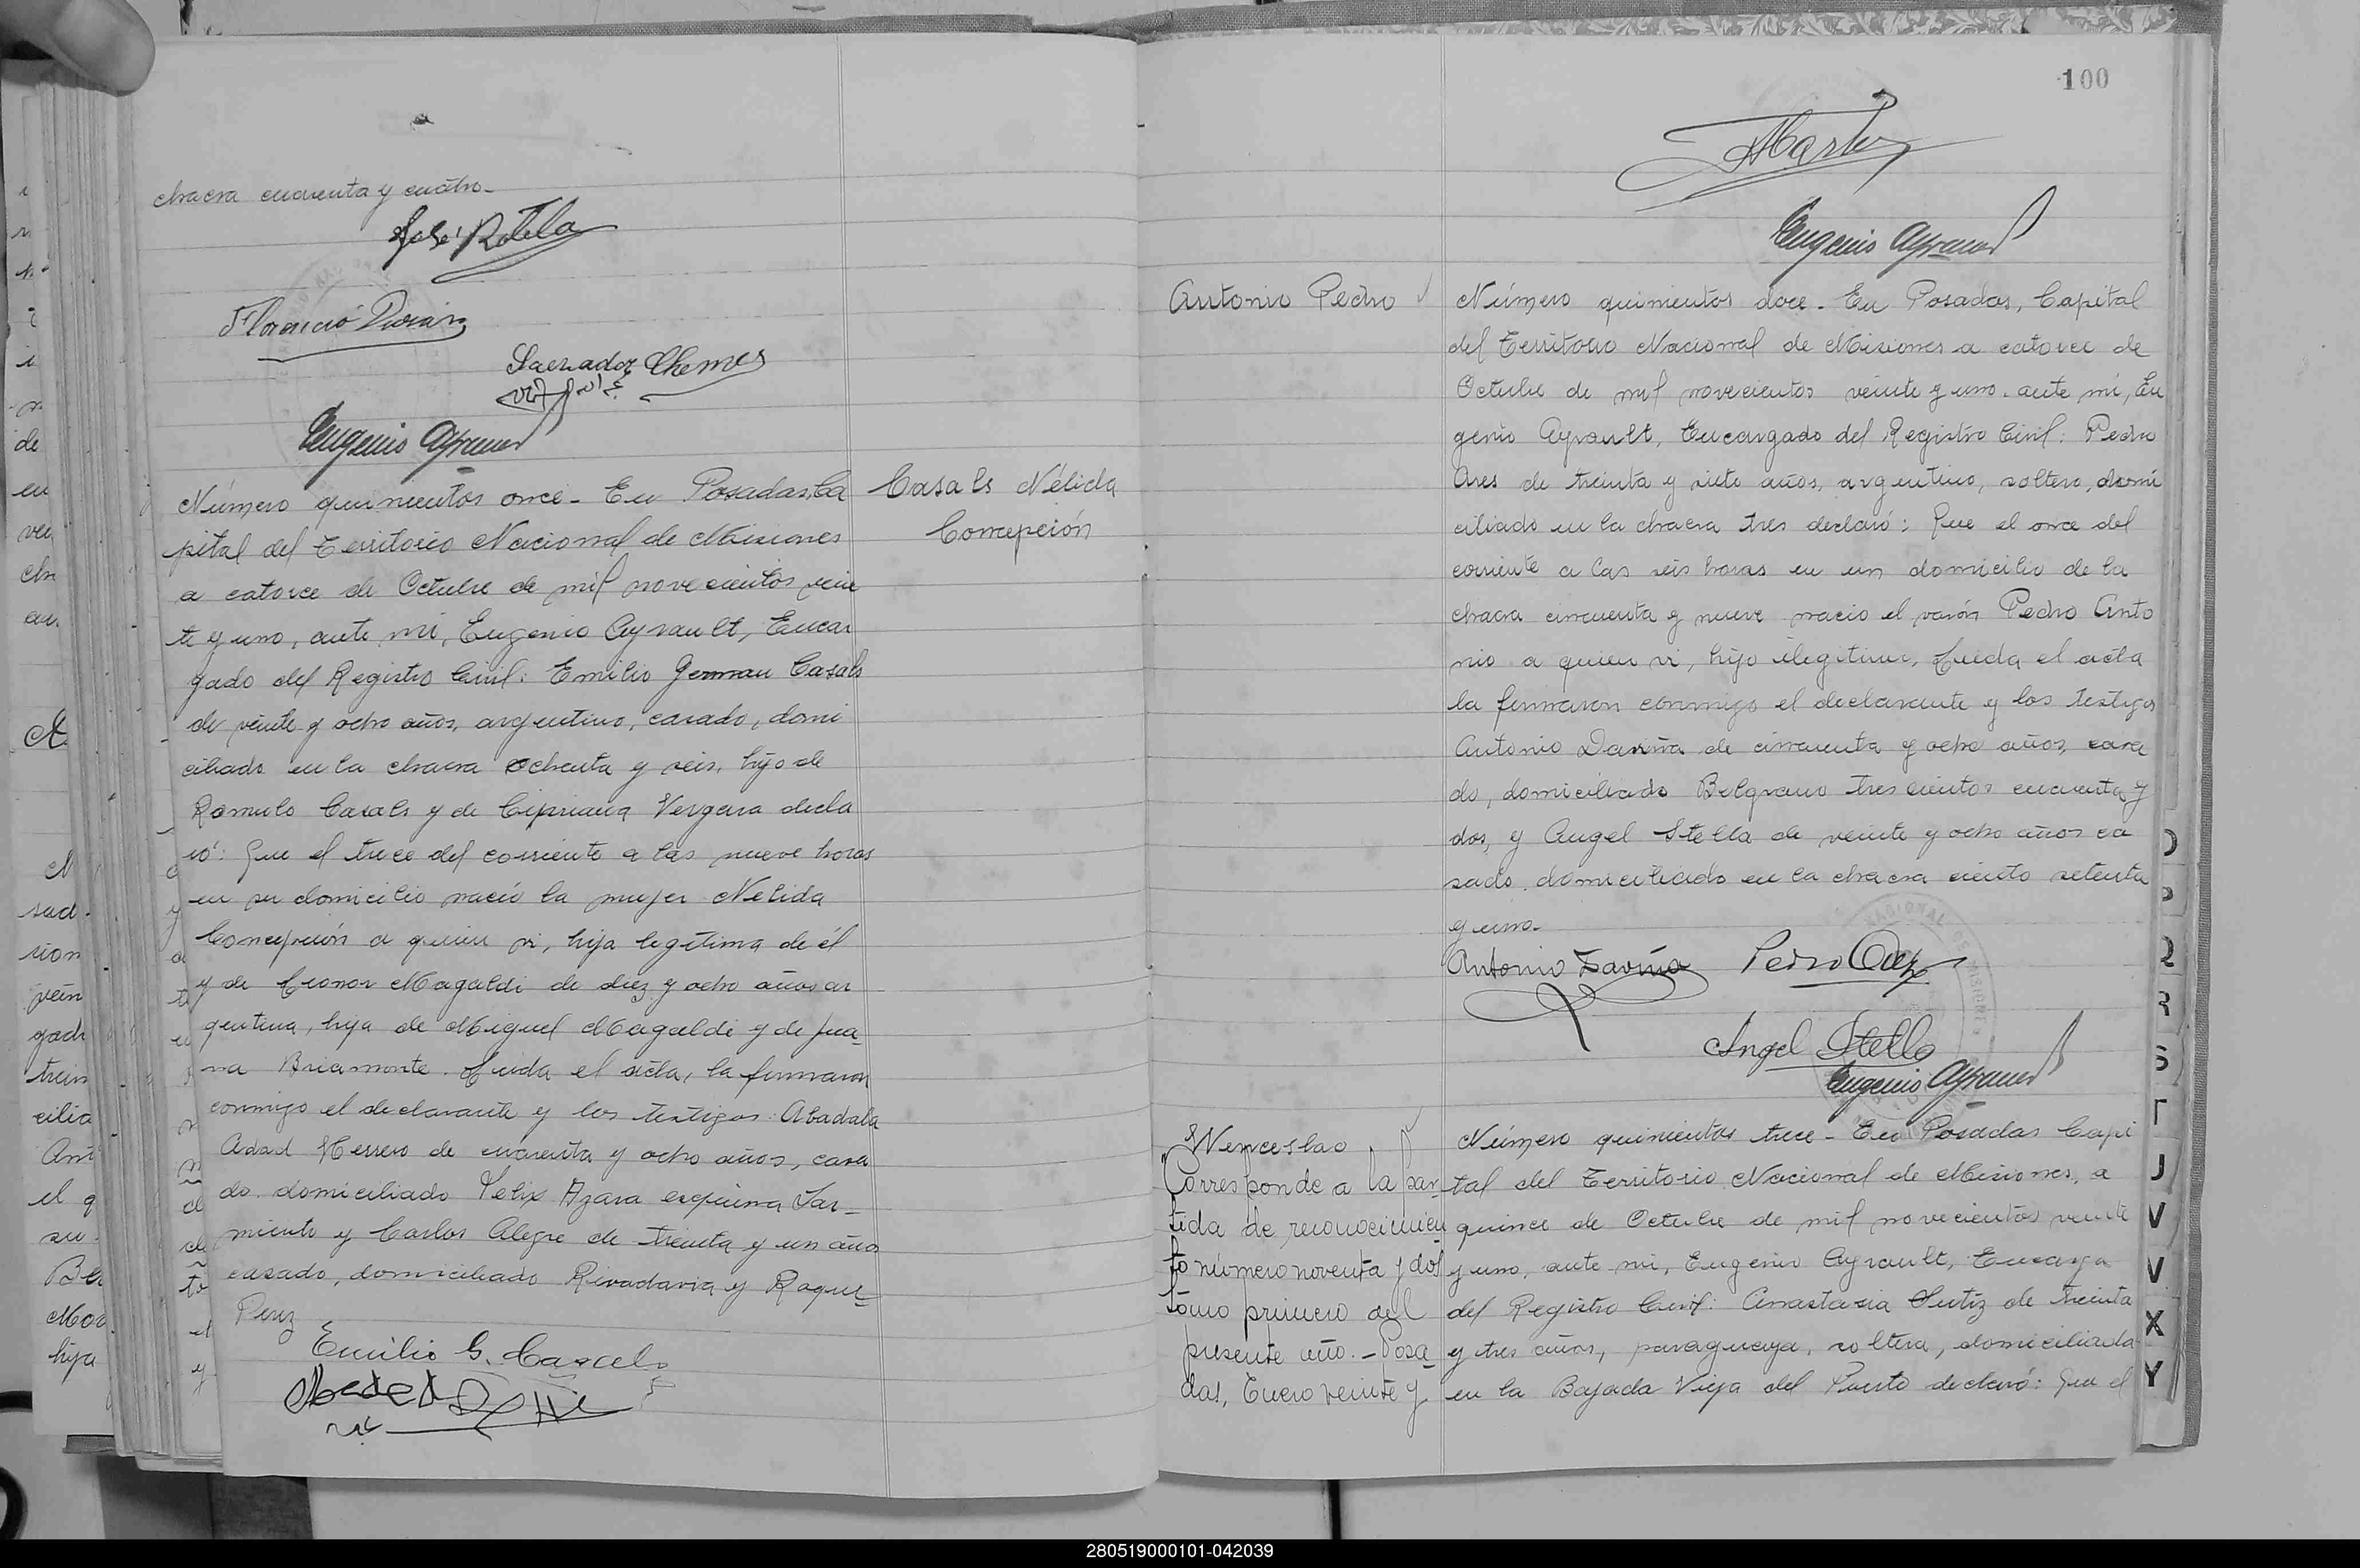 chacra cuarenta y cuatro-
José Rotela
Florencio Duran
Saenador Chemes
Eugenio Ayrault
Número quinientos once- En Posadas, Ca
pital del Territorio Nacional de Misiones
a catorce de Octubre de mil novecientos vein
te y uno, ante mi, Eugenio Ayrault, Encar
gado del Registro Civil: Emilio German Casals
de veinte y ocho años, argentino, casado, domi
ciliado en la chacra ochenta y seis, hijo de
Romulo Casals y de Cipriana Vergara decla
ró: Que el trece del corriente a las nueve horas
en su domicilio nació la mujer Nelida
Concepción a quien vi, hija legitima de él
y de Leonor Magaldi de diez y ocho años ar
gentina, hija de Miguel Magaldi y de Jua-
na Briamonte. Leida el acta, la firmaron
conmigo el declarante y los testigos: Abadala
Adad Herrero de cuarenta y ocho años, casa
do. domiciliado Felix Azara esquina Sar-
miento y Carlos Alegre de treinta y un años
casado, domiciliado Rivadavia y Roque-
Perez
Emilio G. Casals
Casals Nélida
Concepción
100
Eugenio Ayrault
Antonio Pedro
Número quinientos doce- En Posadas, Capital
del Territorio Nacional de Misiones a catorce de
Octubre de mil novecientos veinte y uno. ante mi, Eu
genio Ayrault, Encargado del Registro Civil: Pedro
Ares de treinta y siete años, argentino, soltero, domi
ciliado en la chacra tres declaró: Que el once del
corriente a las seis horas en un domicilio de la
chacra cincuenta y nueve nacio el varón Pedro Anto
nio a quien vi, hijo ilegitimo, Leida el acta
la firmaron conmigo el declarante y los testigos
Antonio Daviña de cincuenta y ocho años, casa
do, domiciliado Belgrano trescientos cuarenta y
dos, y Angel Stella de veinte y ocho años ca
sado, domiciliado en la chacra ciento setenta
y uno-
Antonio Daviña Pedro
Angel Stella
Eugenio Ayrault
Wenceslao
Corresponde a la par-
tida de reconocimien
to número noventa y dos
tomo primero del
presente año.- Posa
das, Enero veinte y
Número quinientos trece- En Posadas Capi
tal del Territorio Nacional de Misiones, a
quince de Octubre de mil novecientos veinte
y uno, ante mi, Eugenio Ayrault, Encarga
del Registro Civil: Anastasia Ortiz de treinta
y tres años, paraguaya, soltera, domiciliada
en la Bajada Vieja del Puerto declaró: Que el
Q
R
S
T
J
V
V
X
Y
280519000101-042039